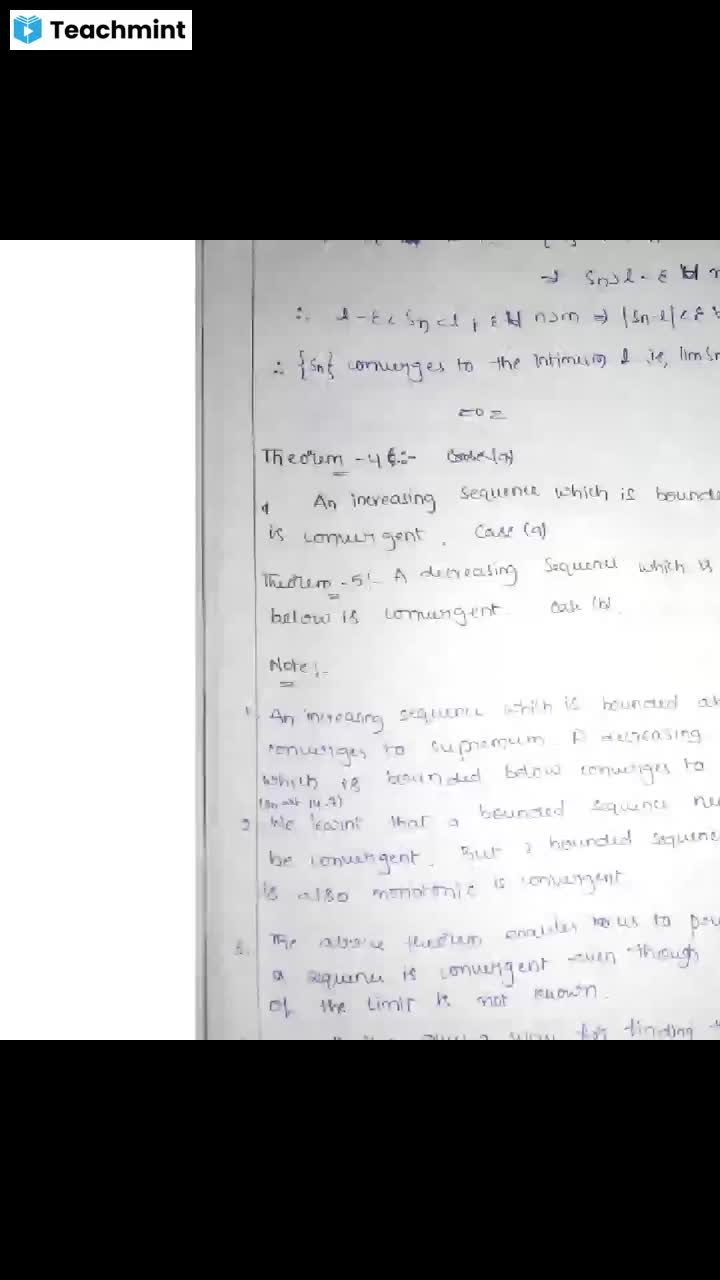 Teachmint
⇒ Sn>l-ε ∀ n
∴ l-ε< Sn <l+ε ∀ n>m ⇒ |Sn-l|<ε
∴ {Sn} converges to the infimum l ie, lim Sn
Theorem -4 :- Case (a)
An increasing sequence which is bounde
is convergent. Case (a)
Theorem -5:- A decreasing sequence which is
below is convergent. Case (b).
Note:-
1. An increasing sequence which is bounded ab
converges to supremum. A decreasing
which is bounded below converges to
2. We learnt that a bounded sequence ne
be convergent. But a bounded sequence
is also monotonic is convergent
3. The above theorem enables us to
a sequence is convergent even through
of the limit is not known.
for finding t